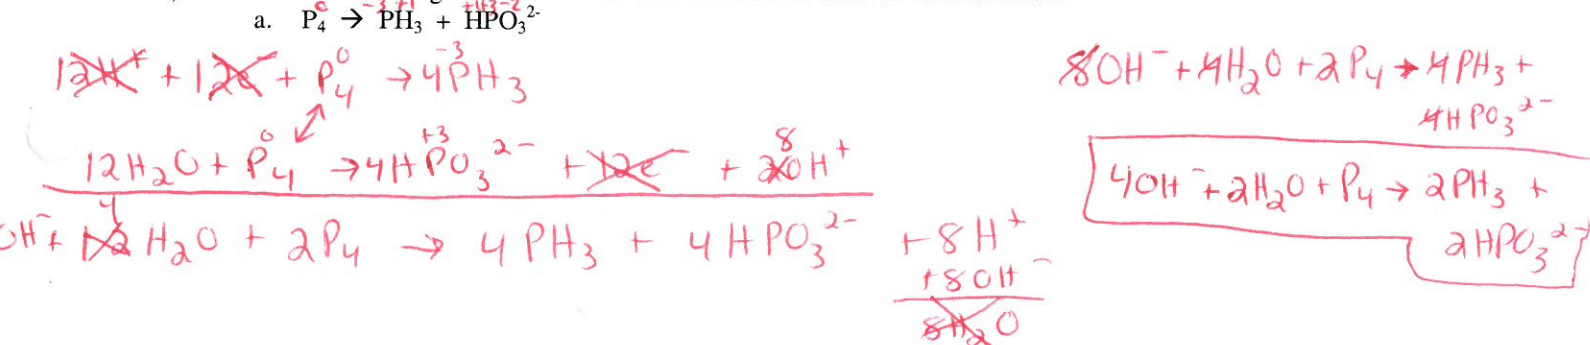 a. P₄ → PH₃ + HPO₃²⁻
0 -3 +1 +1+3-2
12H⁺ + 12e⁻ + P₄⁰ → 4P⁻³H₃
12H₂O + P₄⁰ → 4HP⁺³O₃²⁻ + 12e⁻ + 8 20H⁺
OH⁻ + 4 12 H₂O + 2P₄ → 4PH₃ + 4HPO₃²⁻ + 8H⁺
+8OH⁻
8H₂O
8OH⁻ + 4H₂O + 2P₄ → 4PH₃ +
4HPO₃²⁻
4OH⁻ + 2H₂O + P₄ → 2PH₃ +
2HPO₃²⁻